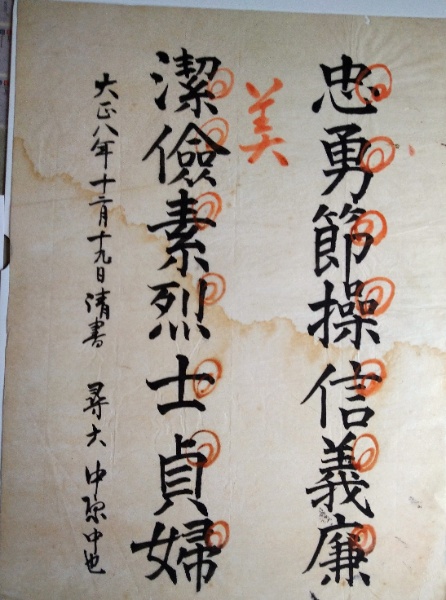 忠勇節操信義廉
美
潔儉素烈士貞婦
大正八年十二月十九日清書 尋六 中原中也